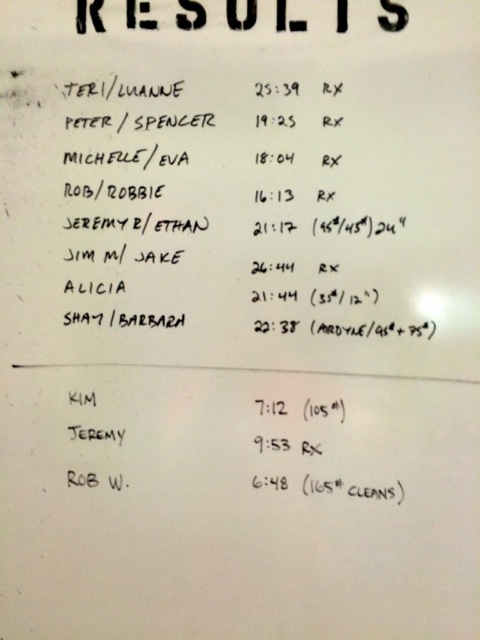 RESULTS
TERI/LUANNE 25:39 RX
PETER/SPENCER 19:25 RX
MICHELLE/EVA 18:04 RX
ROB/ROBBIE 16:13 RX
JEREMY R/ETHAN 21:17 (95#/45#) 24"
JIM M/JAKE 26:44 RX
ALICIA 21:44 (35#/12")
SHAY/BARBARA 22:38 (AIRDYNE/95#+75#)
KIM 7:12 (105#)
JEREMY 9:53 RX
ROB W. 6:48 (165# CLEANS)